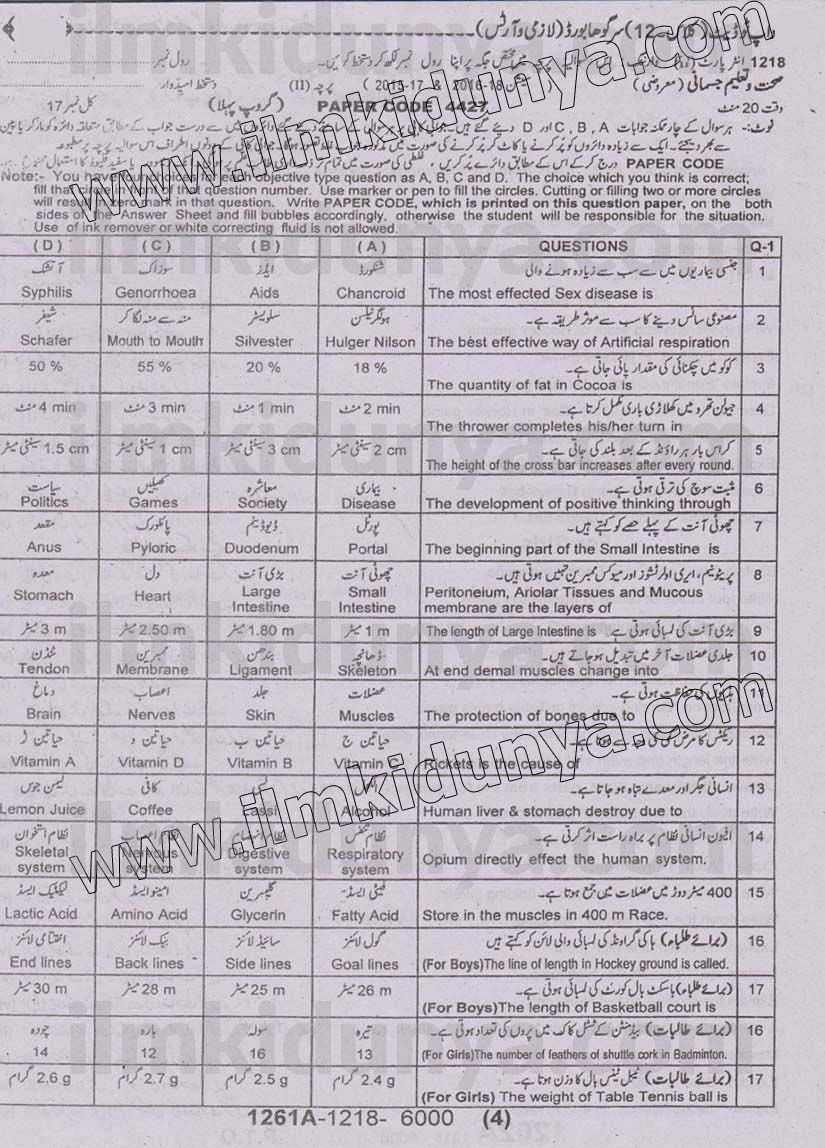 1218
صحت و تعلیم جسمانی (معروضی) (سیشن 2016-18 & 2015-17) پرچہ (II) دستخط امیدوار
وقت 20 منٹ PAPER CODE 4427 (گروپ پہلا) کل نمبر 17
PAPER CODE
Note:- You have four choices for each objective type question as A, B, C and D. The choice which you think is correct;
fill that circle in front of that question number. Use marker or pen to fill the circles. Cutting or filling two or more circles
will result in zero mark in that question. Write PAPER CODE, which is printed on this question paper, on the both
sides of the Answer Sheet and fill bubbles accordingly, otherwise the student will be responsible for the situation.
Use of ink remover or white correcting fluid is not allowed.
(D) (C) (B) (A) QUESTIONS Q-1
آتشک سوزاک ایڈز شنکورڈ جنسی بیماریوں میں سے سب سے زیادہ ہونے والی 1
Syphilis Genorrhoea Aids Chancroid The most effected Sex disease is
شیفر منہ سے منہ لگا کر سلویسٹر ہولگر نیلسن مصنوعی سانس دینے کا سب سے موثر طریقہ ہے۔ 2
Schafer Mouth to Mouth Silvester Hulger Nilson The best effective way of Artificial respiration
50 % 55 % 20 % 18 % کوکو میں چکنائی کی مقدار پائی جاتی ہے۔ 3
The quantity of fat in Cocoa is
4 min منٹ 3 min منٹ 1 min منٹ 2 min منٹ جیولن تھرو میں کھلاڑی باری مکمل کرتا ہے۔ 4
The thrower completes his/her turn in
1.5 cm سینٹی میٹر 1 cm سینٹی میٹر 3 cm سینٹی میٹر 2 cm سینٹی میٹر کراس بار ہر راؤنڈ کے بعد بلند کی جاتی ہے۔ 5
The height of the cross bar increases after every round.
سیاست کھیلیں معاشرہ بیماری مثبت سوچ کی ترقی ہوتی ہے۔ 6
Politics Games Society Disease The development of positive thinking through
مقعد پائلورک ڈیوڈینم پورٹل چھوٹی آنت کے پہلے حصے کو کہتے ہیں۔ 7
Anus Pyloric Duodenum Portal The beginning part of the Small Intestine is
معدہ دل بڑی آنت چھوٹی آنت پریٹونیم، ایری اولر ٹشوز اور میوکس ممبرین تہیں ہوتی ہیں۔ 8
Stomach Heart Large Intestine Small Intestine Peritoneium, Ariolar Tissues and Mucous
membrane are the layers of
3 m میٹر 2.50 m میٹر 1.80 m میٹر 1 m میٹر The length of Large Intestine is بڑی آنت کی لمبائی ہوتی ہے۔ 9
ٹنڈن ممبرین بندھن ڈھانچہ جلدی عضلات آخر میں تبدیل ہو جاتے ہیں۔ 10
Tendon Membrane Ligament Skeleton At end demal muscles change into
دماغ اعصاب جلد عضلات ہڈیوں کی حفاظت ہوتی ہے۔ 11
Brain Nerves Skin Muscles The protection of bones due to
حیاتین ا حیاتین د حیاتین ب حیاتین ج 12
Vitamin A Vitamin D Vitamin B Vitamin C Rickets is the cause of
لیمن جوس کافی انسانی جگر اور معدے تباہ ہو جاتا ہے۔ 13
Lemon Juice Coffee Lassi Alcohol Human liver & stomach destroy due to
نظام استخوان نظام تنفس افیون انسانی نظام پر براہ راست اثر کرتی ہے۔ 14
Skeletal system Nervous system Digestive system Respiratory system Opium directly effect the human system.
لیکٹک ایسڈ امینو ایسڈ گلیسرین فیٹی ایسڈ 400 میٹر دوڑ میں عضلات میں جمع ہوتا ہے۔ 15
Lactic Acid Amino Acid Glycerin Fatty Acid Store in the muscles in 400 m Race.
اختتامی لائنز بیک لائنز سائیڈ لائنز گول لائنز (برائے طلباء) ہاکی گراؤنڈ کی لمبائی والی لائن کو کہتے ہیں 16
End lines Back lines Side lines Goal lines (For Boys)The line of length in Hockey ground is called.
30 m میٹر 28 m میٹر 25 m میٹر 26 m میٹر (برائے طلباء) باسکٹ بال کورٹ کی لمبائی ہوتی ہے۔ 17
(For Boys)The length of Basketball court is
چودہ بارہ سولہ تیرہ (برائے طالبات) بیڈمنٹن کے شٹل کاک میں پروں کی تعداد ہوتی ہے۔ 16
14 12 16 13 (For Girls)The number of feathers of shuttle cork in Badminton.
2.6 g گرام 2.7 g گرام 2.5 g گرام 2.4 g گرام (برائے طالبات) ٹیبل ٹینس بال کا وزن ہوتا ہے۔ 17
(For Girls) The weight of Table Tennis ball is
1261A-1218- 6000 (4)
www.ilmkidunya.com
www.ilmkidunya.com